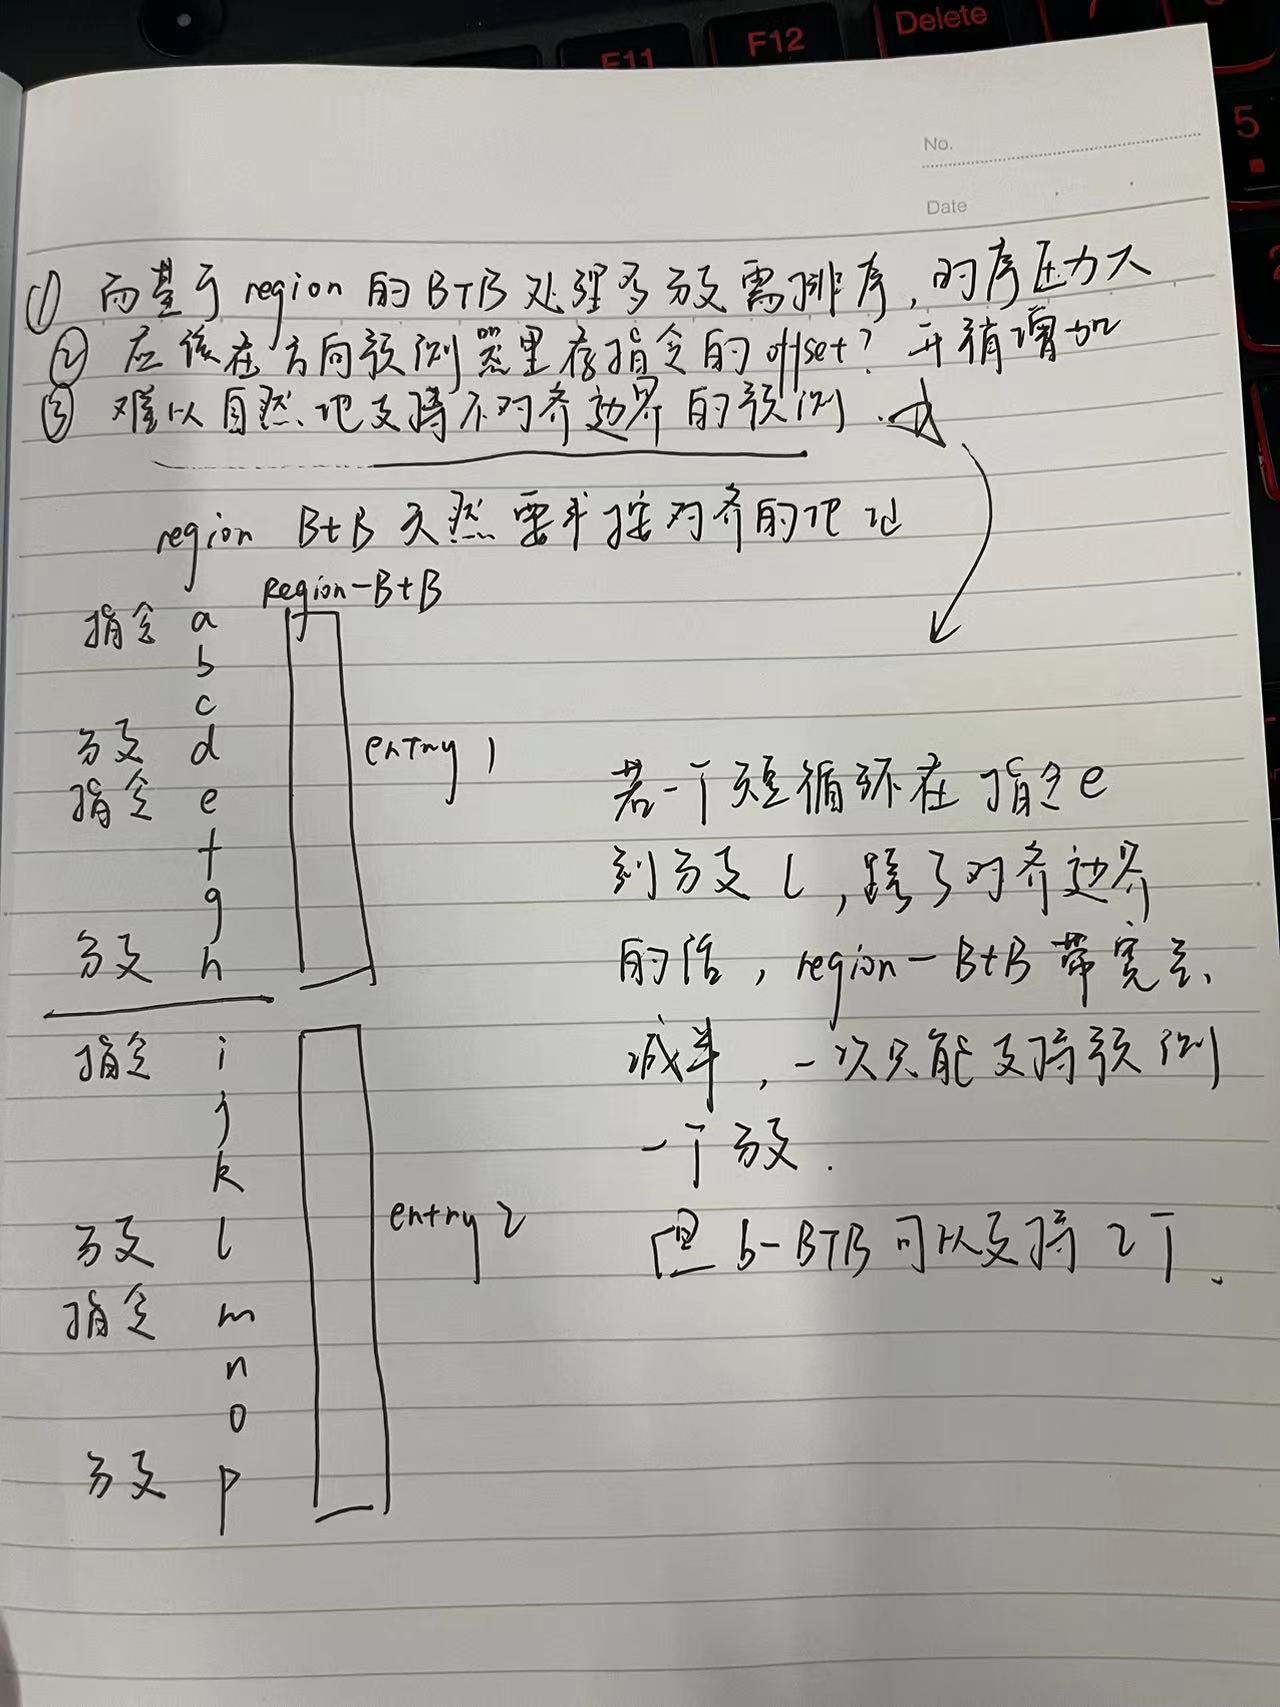 F11 F12 Delete 7
5
No.
Date
① 而基于region的BTB处理多分支需排序,时序压力大
② 应该在方向预测器里存指令的offset? 开销增加
③ 难以自然地支持不对齐边界的预测.
region BtB 天然要求按对齐的地址
Region-BtB
指令 a
b
c
分支 d
entry 1
指令 e
f
g
分支 h
指令 i
j
k
分支 l
entry 2
指令 m
n
o
分支 p
若一个短循环在指令e
到分支l,跨了对齐边界
的话,region-BtB带宽会
减半,一次只能支持预测
一个分支.
但b-BTB可以支持2个.